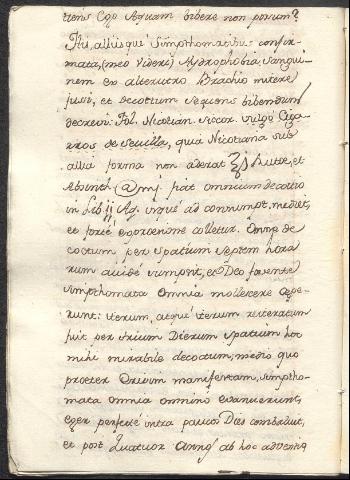 tiens Ego Aquam bibere non possum?
His, alliisquè Simpthomatibus confir-
mata, (meo Videre) Hydrophobia, sangui-
nem ex alterutro Brachio mitere
jussi, et decoctum sequens bibendum
decrevi: Fol. Nicotian. siccar. vulgò Ciga-
rros de Sevilla, quia Nicotiana sub
allia forma non aderat ʒj Rutæ, et
Absinth. @ mj. fiat omnium decoctio
in Lib ij Aq. usquè ad consumpt. mediet.
et fortè expresione colletur. Omne de-
coctum per spatium septem hora
rum avidè sumpsit, et Deo favente
simpthomata omnia mollescere cepe-
runt: iterum, atquè iterum reiteratum
fuit per trium Dierum spatium hoc
mihi mirabile decoctum, medio quo
præter Crisim manifestam, simptho-
mata omnia omnino evanuerunt,
eger perfectè intra paucos Dies combaluit,
et post Quatuor Annos ab hoc adventu